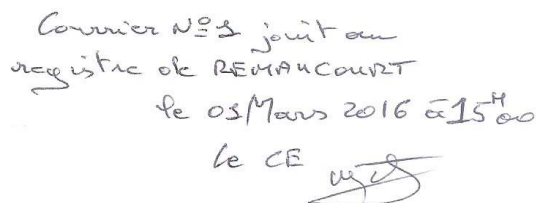 Courrier N°1 joint au
registre de REMAUCOURT
le 01 Mars 2016 à 15H00
le CE